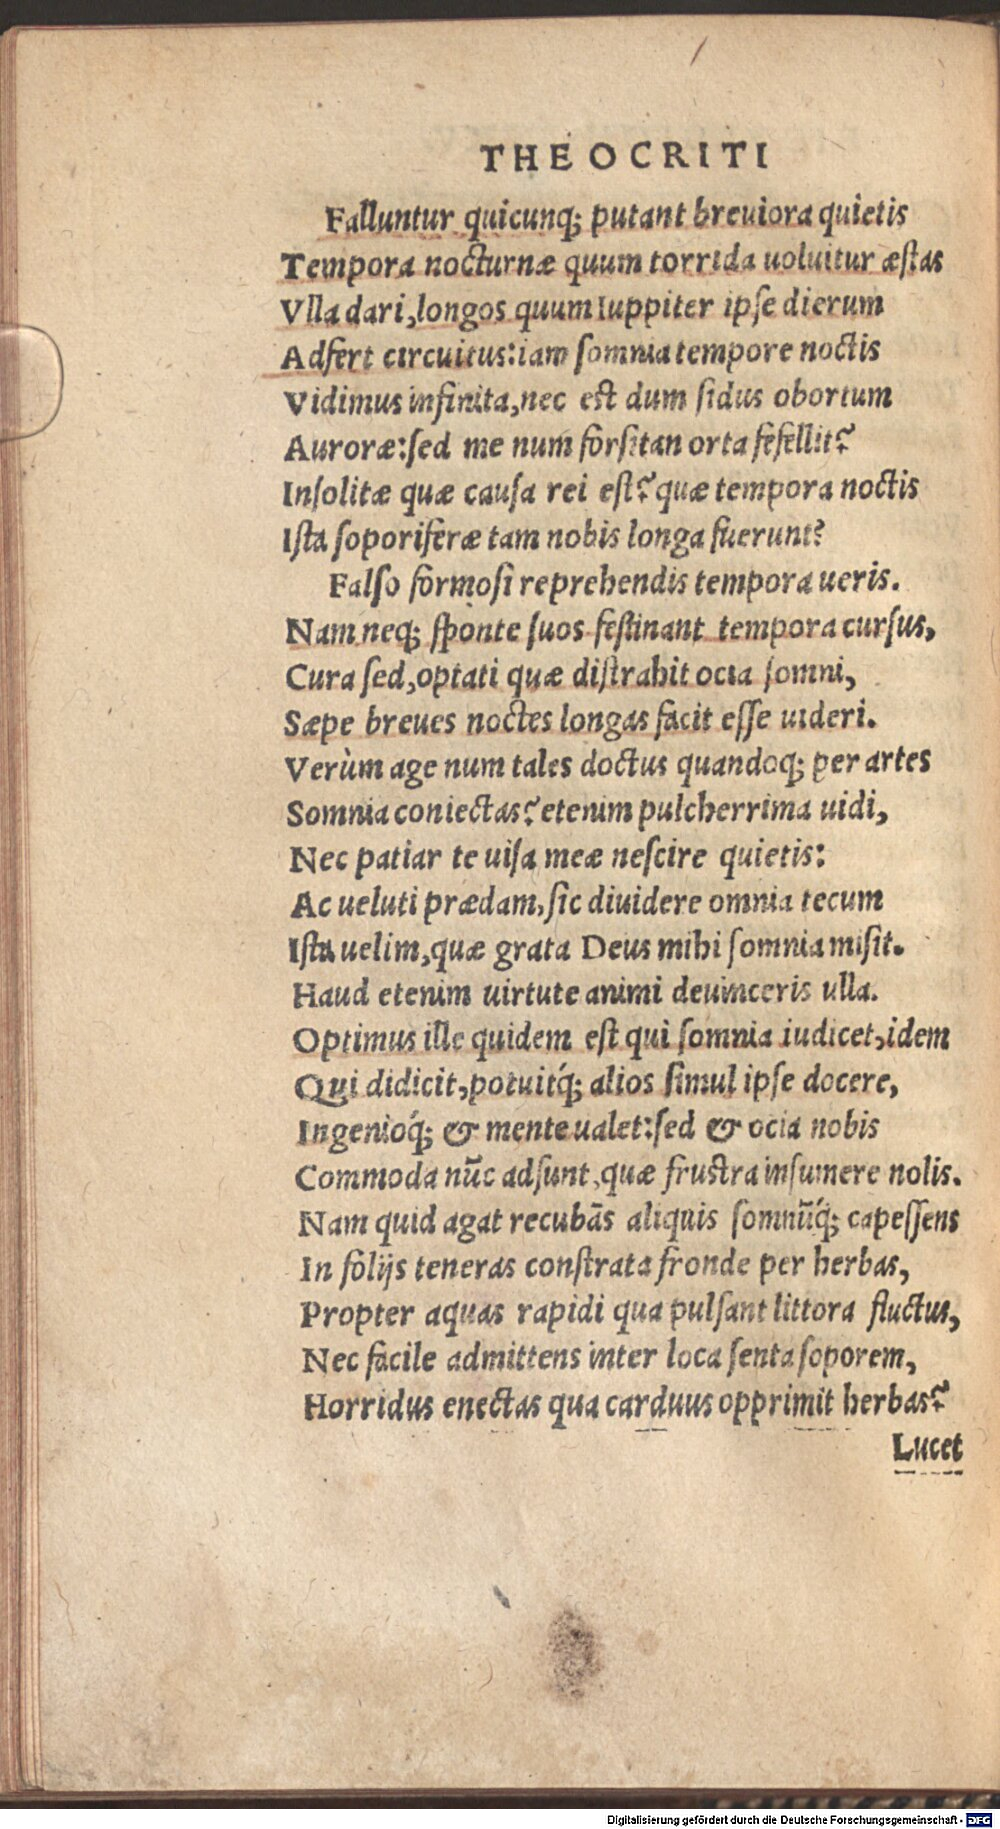 THEOCRITI
Falluntur quicunq; putant breuiora quietis
Tempora nocturnæ quum torrida uoluitur æstas
Vlla dari, longos quum Iuppiter ipse dierum
Adfert circuitus: iam somnia tempore noctis
Vidimus infinita, nec est dum sidus obortum
Auroræ: sed me num forsitan orta fefellit?
Insolitæ quæ causa rei est? quæ tempora noctis
Ista soporiferæ tam nobis longa fuerunt?
Falso formosi reprehendis tempora ueris.
Nam neq; sponte suos festinant tempora cursus,
Cura sed, optati quæ distrahit ocia somni,
Sæpe breues noctes longas facit esse uideri.
Verùm age num tales doctus quandoq; per artes
Somnia coniectas? etenim pulcherrima uidi,
Nec patiar te uisa meæ nescire quietis:
Ac ueluti prædam, sic diuidere omnia tecum
Ista uelim, quæ grata Deus mihi somnia misit.
Haud etenim uirtute animi deuinceris ulla.
Optimus ille quidem est qui somnia iudicet, idem
Qui didicit, potuitq́; alios simul ipse docere,
Ingenioq́; & mente ualet: sed & ocia nobis
Commoda nūc adsunt, quæ frustra insumere nolis.
Nam quid agat recubās aliquis somnūq́; capessens
In folijs teneras constrata fronde per herbas,
Propter aquas rapidi qua pulsant littora fluctus,
Nec facile admittens inter loca senta soporem,
Horridus enectas qua carduus opprimit herbas?
Lucet
Digitalisierung gefördert durch die Deutsche Forschungsgemeinschaft - DFG